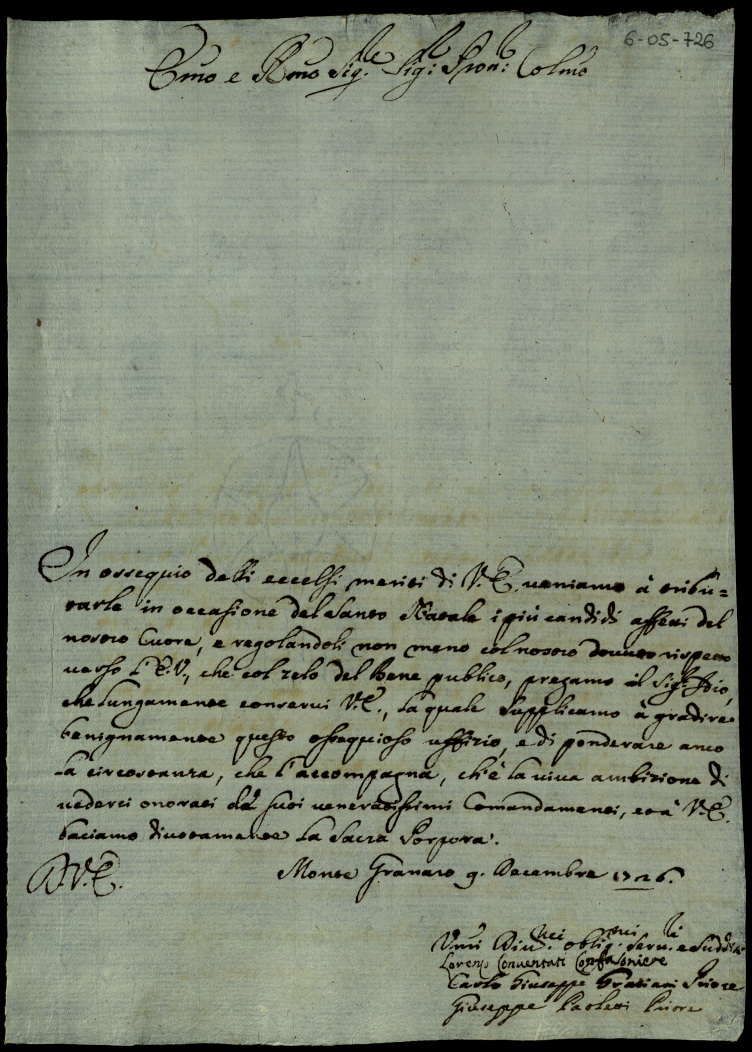 6-05-726
Emo e Rmo Sigre Sigr Pron: Colmo
In ossequio delli eccelsi meriti di V.E. veniamo à tribu=
tarle in occasione del Santo Natale i più candidi affetti del
nostro Cuore, e regolandoli non meno col nostro dovuto rispetto
verso l'E.V., che col zelo del bene publico, pregamo il Sigre Idio,
che lungamente conservi V.E., la quale supplicamo à gradire
benignamente questo ossequioso uffizio, e di ponderare anco
la circostanza, che l'accompagna, ch'è la viva ambizione di
vederci onorati da' suoi veneratissimi Comandamenti, et à V.E.
baciamo divotamente la Sacra Porpora.
D.V.E. Monte Granaro 9. Decembre 1726.
Vmi Divmi obligmi Servi e Sudditi
Lorenzo Conventati Confaloniere
Carlo Giuseppe Gratiani Priore
Giuseppe Paoletti Priore